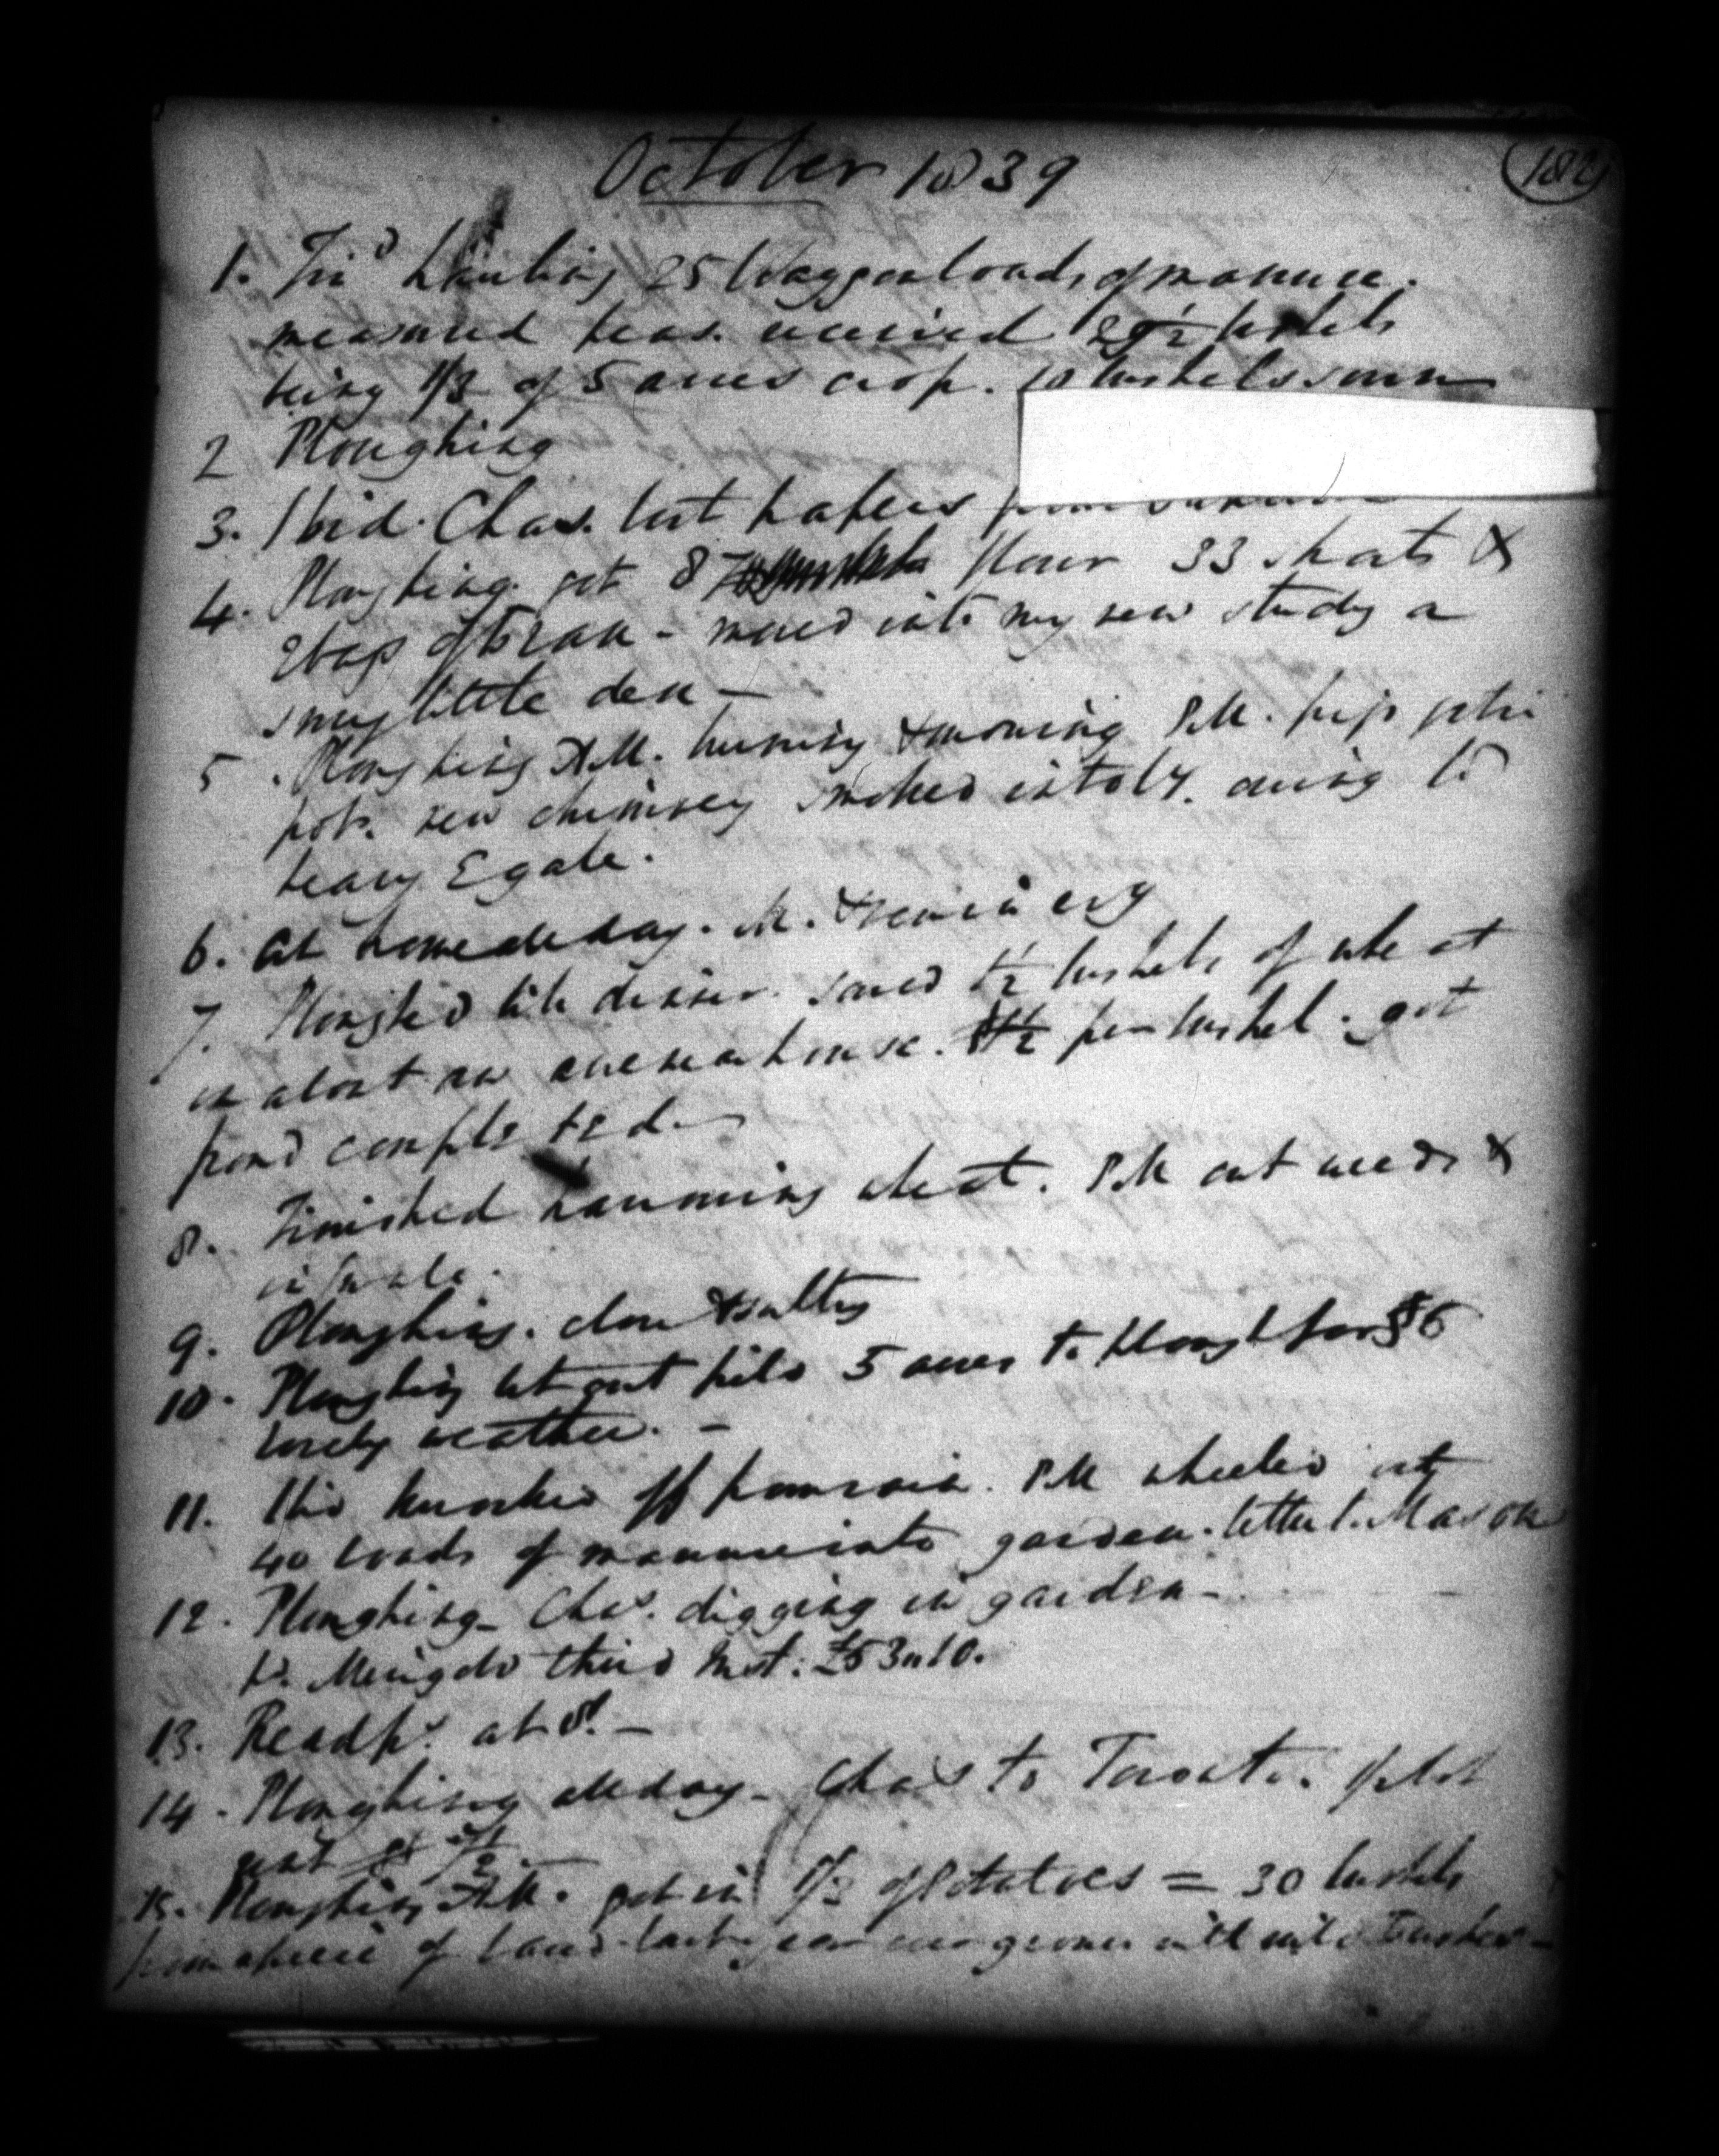 October 1839
182
1. Fin^d hauling 25 Waggon loads of manure.
measured peas. received bushels
being 1/3 of 5 acres crop. 10 bushels
2 Ploughing
3. Ibid. Chas. lost papers from
4. Ploughing. got flour 33 shorts &
2 bags of bran - moved into my new study a
snug little den -
5. Ploughing A.M. burning & mowing P.M.
pot. new chimney smoked owing to
heavy E gale.
6. at home all day. M. &
7. Ploughed till dinner. sowed 1 1/2 bushels of wheat
in about an acre near house. per bushel. got
pond completed -
8. Finished harrowing wheat. P.M cut weeds &
in swale.
9. Ploughing. close & sultry
10. Ploughing let out field 5 acres to plough for $6
lovely weather. -
11. Ibid knocked off from rain. P.M wheeled
40 loads of manure into garden. letter t. Mason
12. Ploughing - Chas. digging in garden -
third Inst: £53 " 10.
13. Read p^s. at 8. -
14. Ploughing all day - Chas to Toronto.
15. Ploughing A.M. got in 1/3 of Potatoes = 30 bushels
from a piece of land last year over grown with